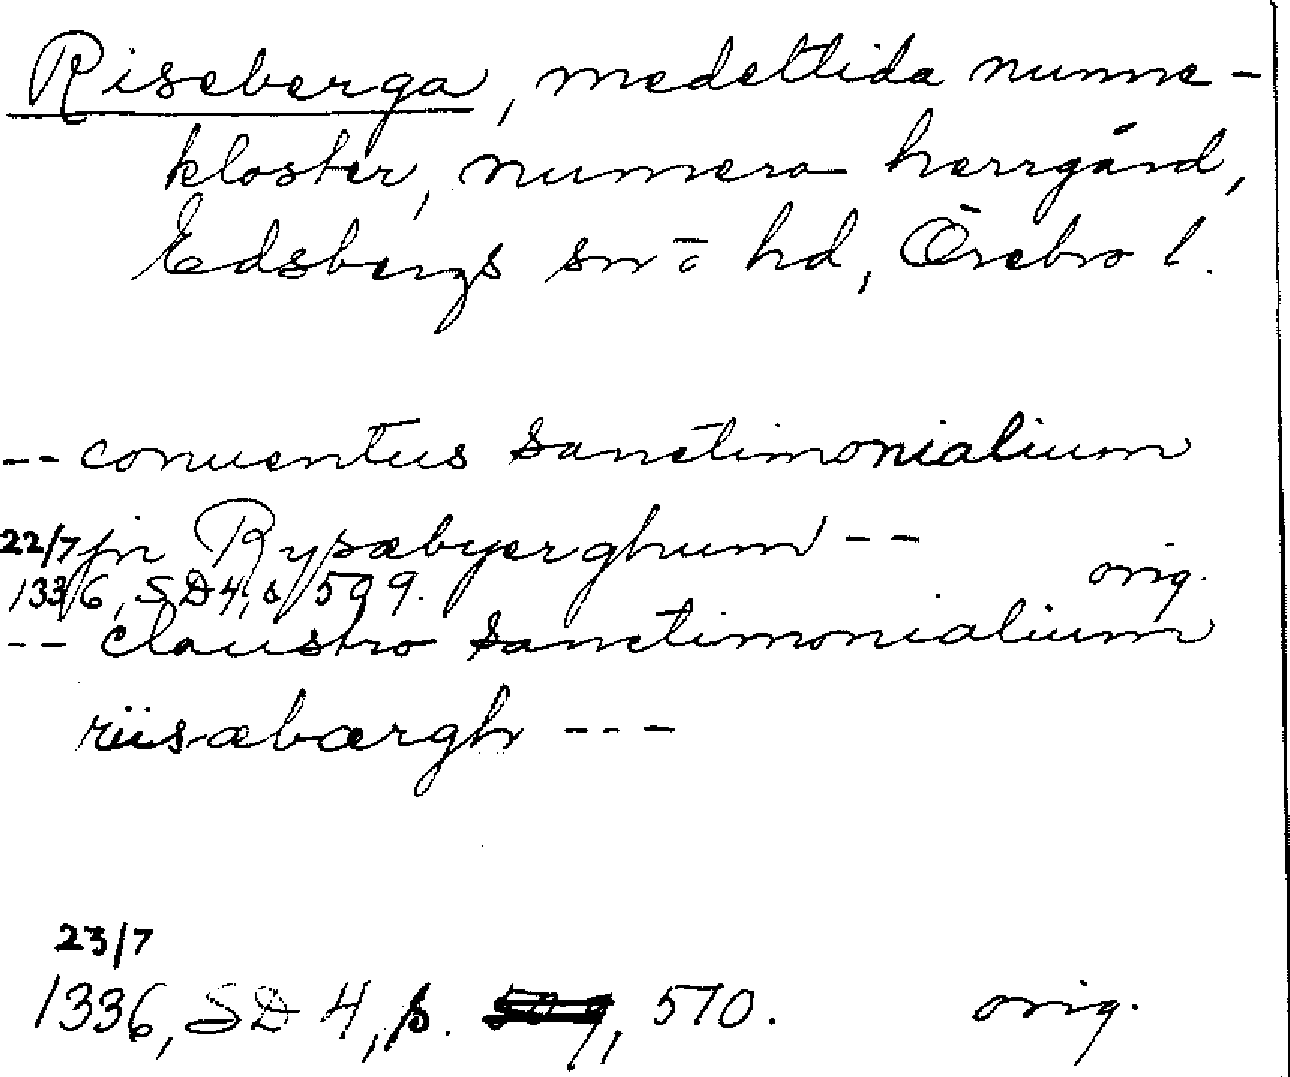 Riseberga, medeltida nunne-
kloster, numera herrgård,
Edsbergs sn o hd, Örebro l.
-- conuentus sanctimonialium
in Rysæbyerghum --
22/7 1336, SD 4, s 509. orig.
-- claustro sanctimonialium
riisæbærgh ---
23/7
1336, SD 4, s. 509, 510. orig.